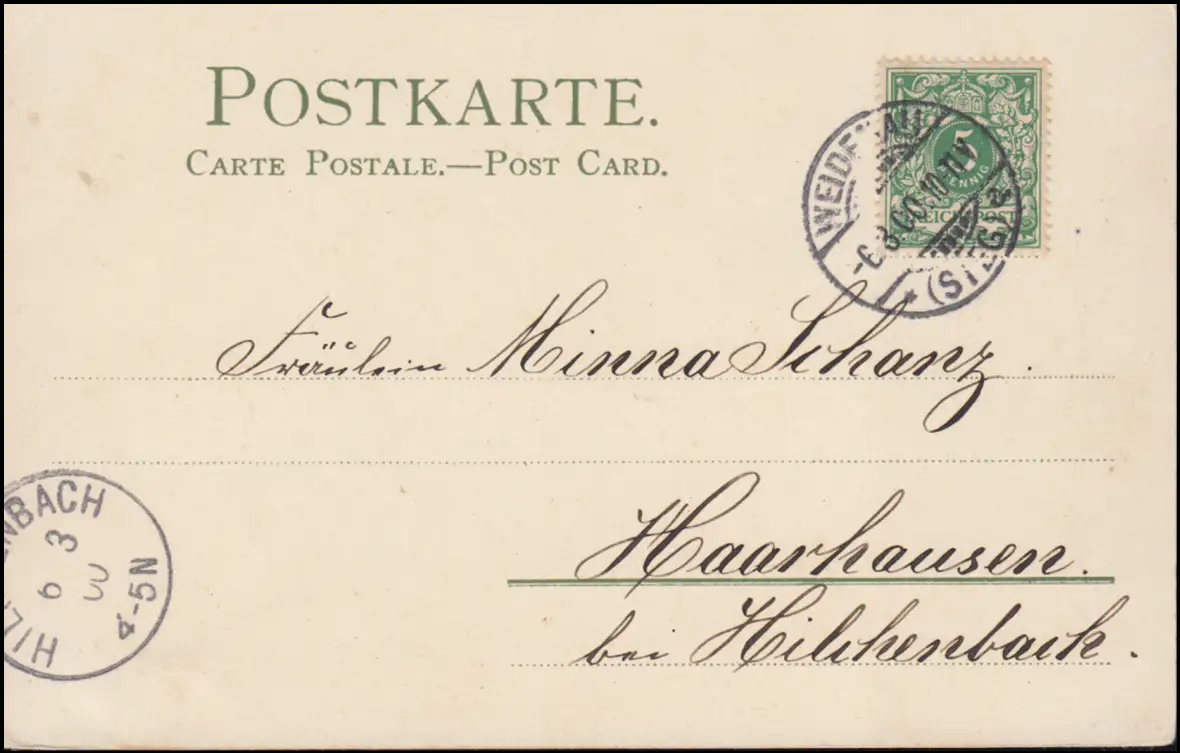 POSTKARTE.
CARTE POSTALE.—POST CARD.
5
PFENNIG
REICHSPOST
WEIDENAU
-6.3.00.10-11V
* (SIEG) a
Fräulein Minna Schanz.
Haarhausen.
bei Hilchenbach.
HILCHENBACH
6 3
00
4-5N